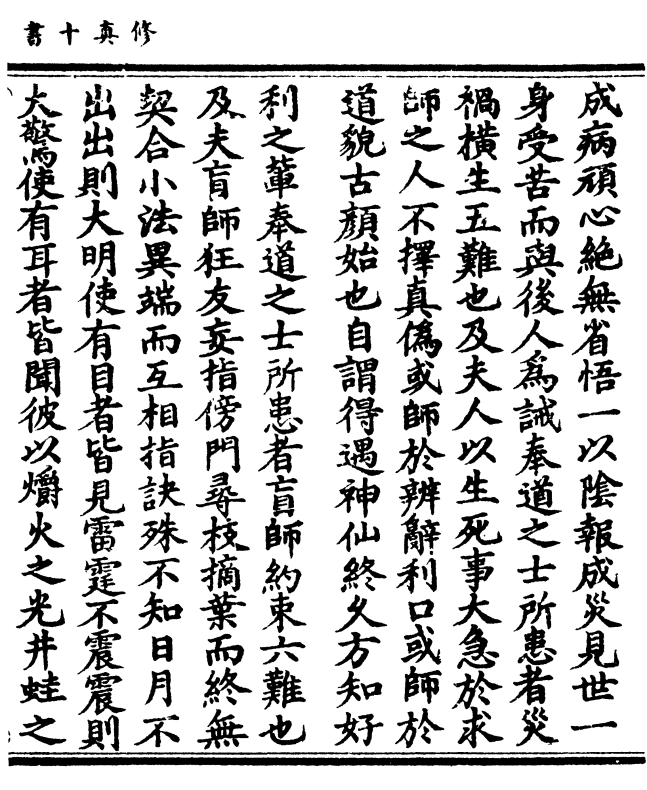 修真十書
成病頑心絶無省悟一以陰報成災見世一
身受苦而與後人為誡奉道之士所患者災
禍橫生五難也及夫人以生死事大急於求
師之人不擇真偽或師於辨辭利口或師於
道貌古顔始也自謂得遇神仙終久方知好
利之輩奉道之士所患者盲師約束六難也
及夫盲師狂友妄指傍門尋枝摘葉而終無
契合小法異端而互相指訣殊不知日月不
出出則大明使有目者皆見雷霆不震震則
大驚使有耳者皆聞彼以爝火之光井蛙之